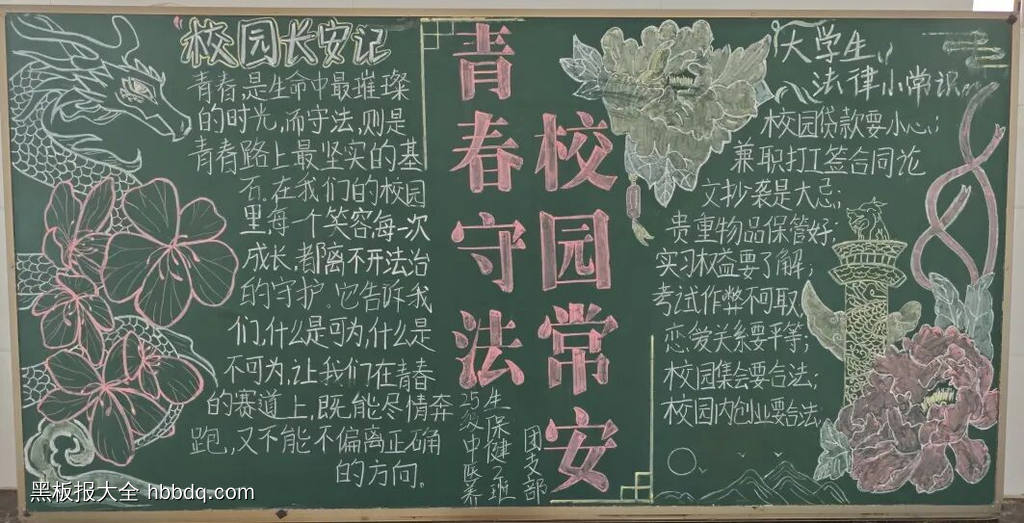 校园长安记
青春是生命中最璀璨
的时光,而守法,则是
青春路上最坚实的基
石。在我们的校园
里每一个笑容,每一次
成长,都离不开法治
的守护。它告诉我
们,什么是可为,什么是
不可为,让我们在青春
的赛道上,既能尽情奔
跑,又不能不偏离正确
的方向。
青春守法
校园常安
25级中医养
生保健2班
团支部
大学生
法律小常识。
校园贷款要小心;
兼职打工签合同
文抄袭是大忌;
贵重物品保管好;
实习权益要了解;
考试作弊不可取
恋爱关系要平等;
校园集会要合法;
校园内创业要合法
黑板报大全 hbbdq.com